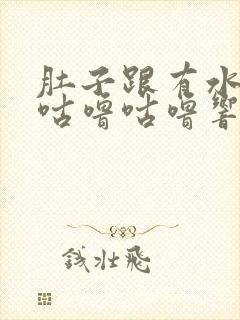 肚子跟有水
咕噜咕噜响
钱壮飛